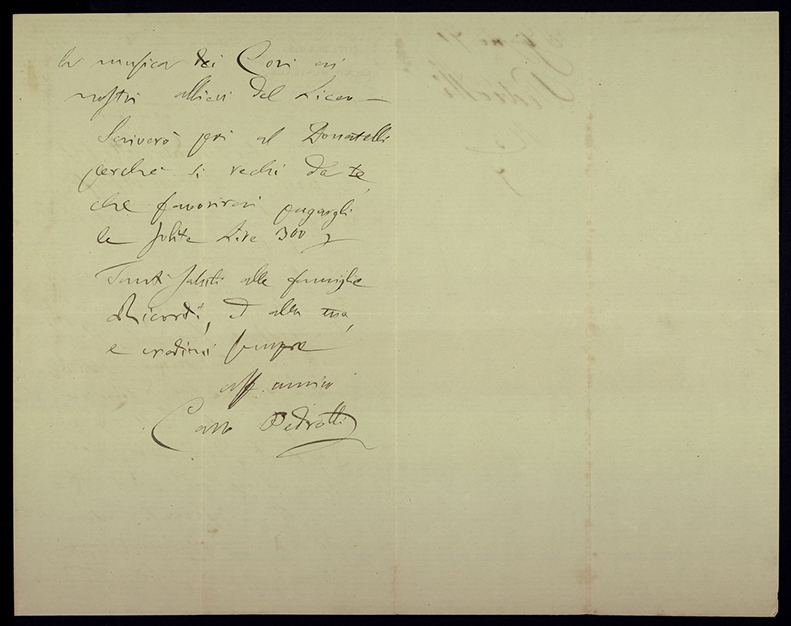 la musica dei Cori ai
nostri allievi del Liceo —
Scriverò poi al Donatelli
perchè si rechi da te,
che favorirai pagargli
le solite Lire 300
Tanti saluti alla famiglia
Ricordi, ed alla tua,
e credimi sempre
aff. amico
Carlo Pedrotti
Pedrotti